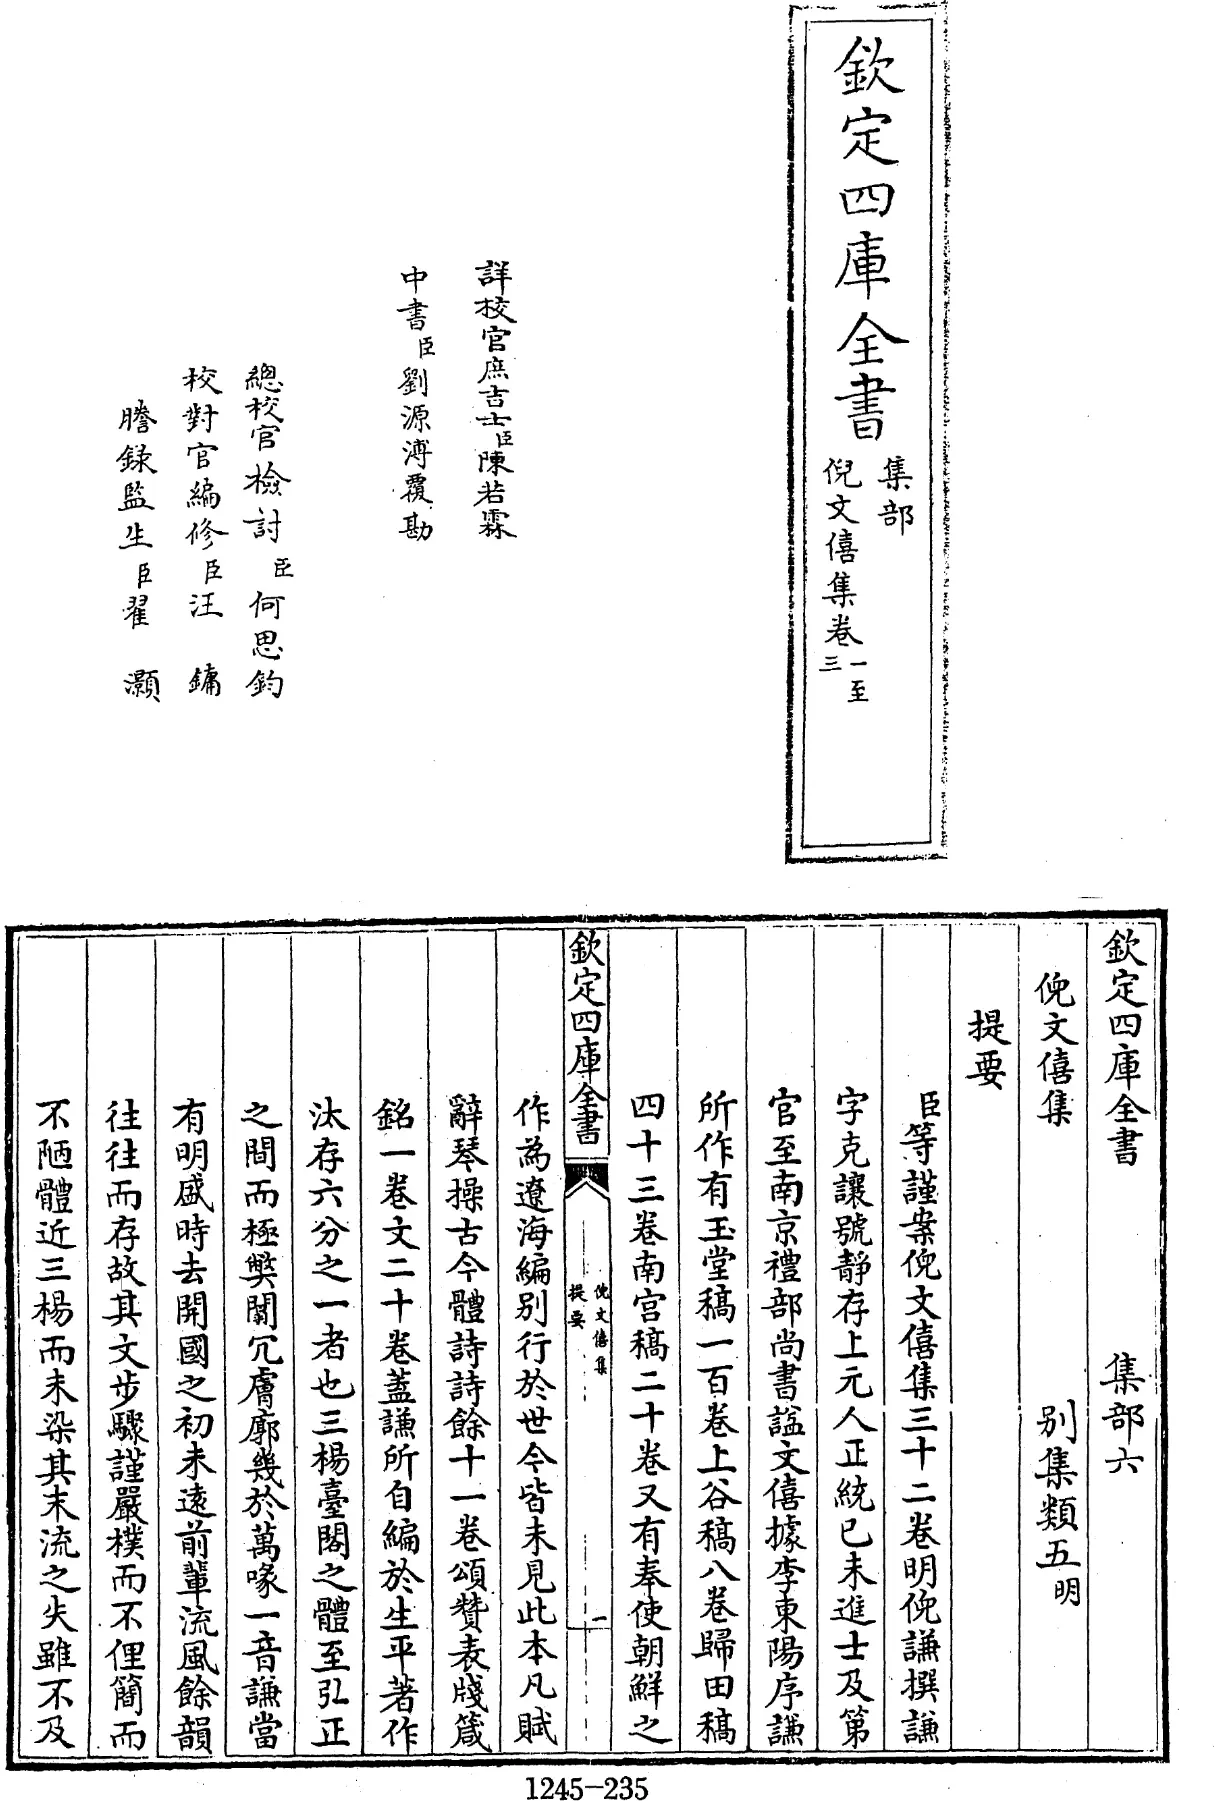 欽定四庫全書
集部
倪文僖集卷一至三
詳校官庶吉士臣陳若霖
中書臣劉源溥覆勘
總校官檢討臣何思鈞
校對官編修臣汪鏞
謄錄監生臣翟灝
欽定四庫全書 集部六
倪文僖集 別集類五明
提要
臣等謹案倪文僖集三十二卷明倪謙撰謙
字克讓號靜存上元人正統己未進士及第
官至南京禮部尚書諡文僖據李東陽序謙
所作有玉堂稿一百卷上谷稿八卷歸田稿
四十三卷南宮稿二十卷又有奉使朝鮮之
欽定四庫全書 倪文僖集 提要 一
作為遼海編別行於世今皆未見此本凡賦
辭琴操古今體詩詩餘十一卷頌贊表牋箴
銘一卷文二十卷蓋謙所自編於生平著作
汰存六分之一者也三楊臺閣之體至弘正
之間而極弊闒冗膚廓幾於萬喙一音謙當
有明盛時去開國之初未遠前輩流風餘韻
往往而存故其文步驟謹嚴樸而不俚簡而
不陋體近三楊而未染其末流之失雖不及
1245-235